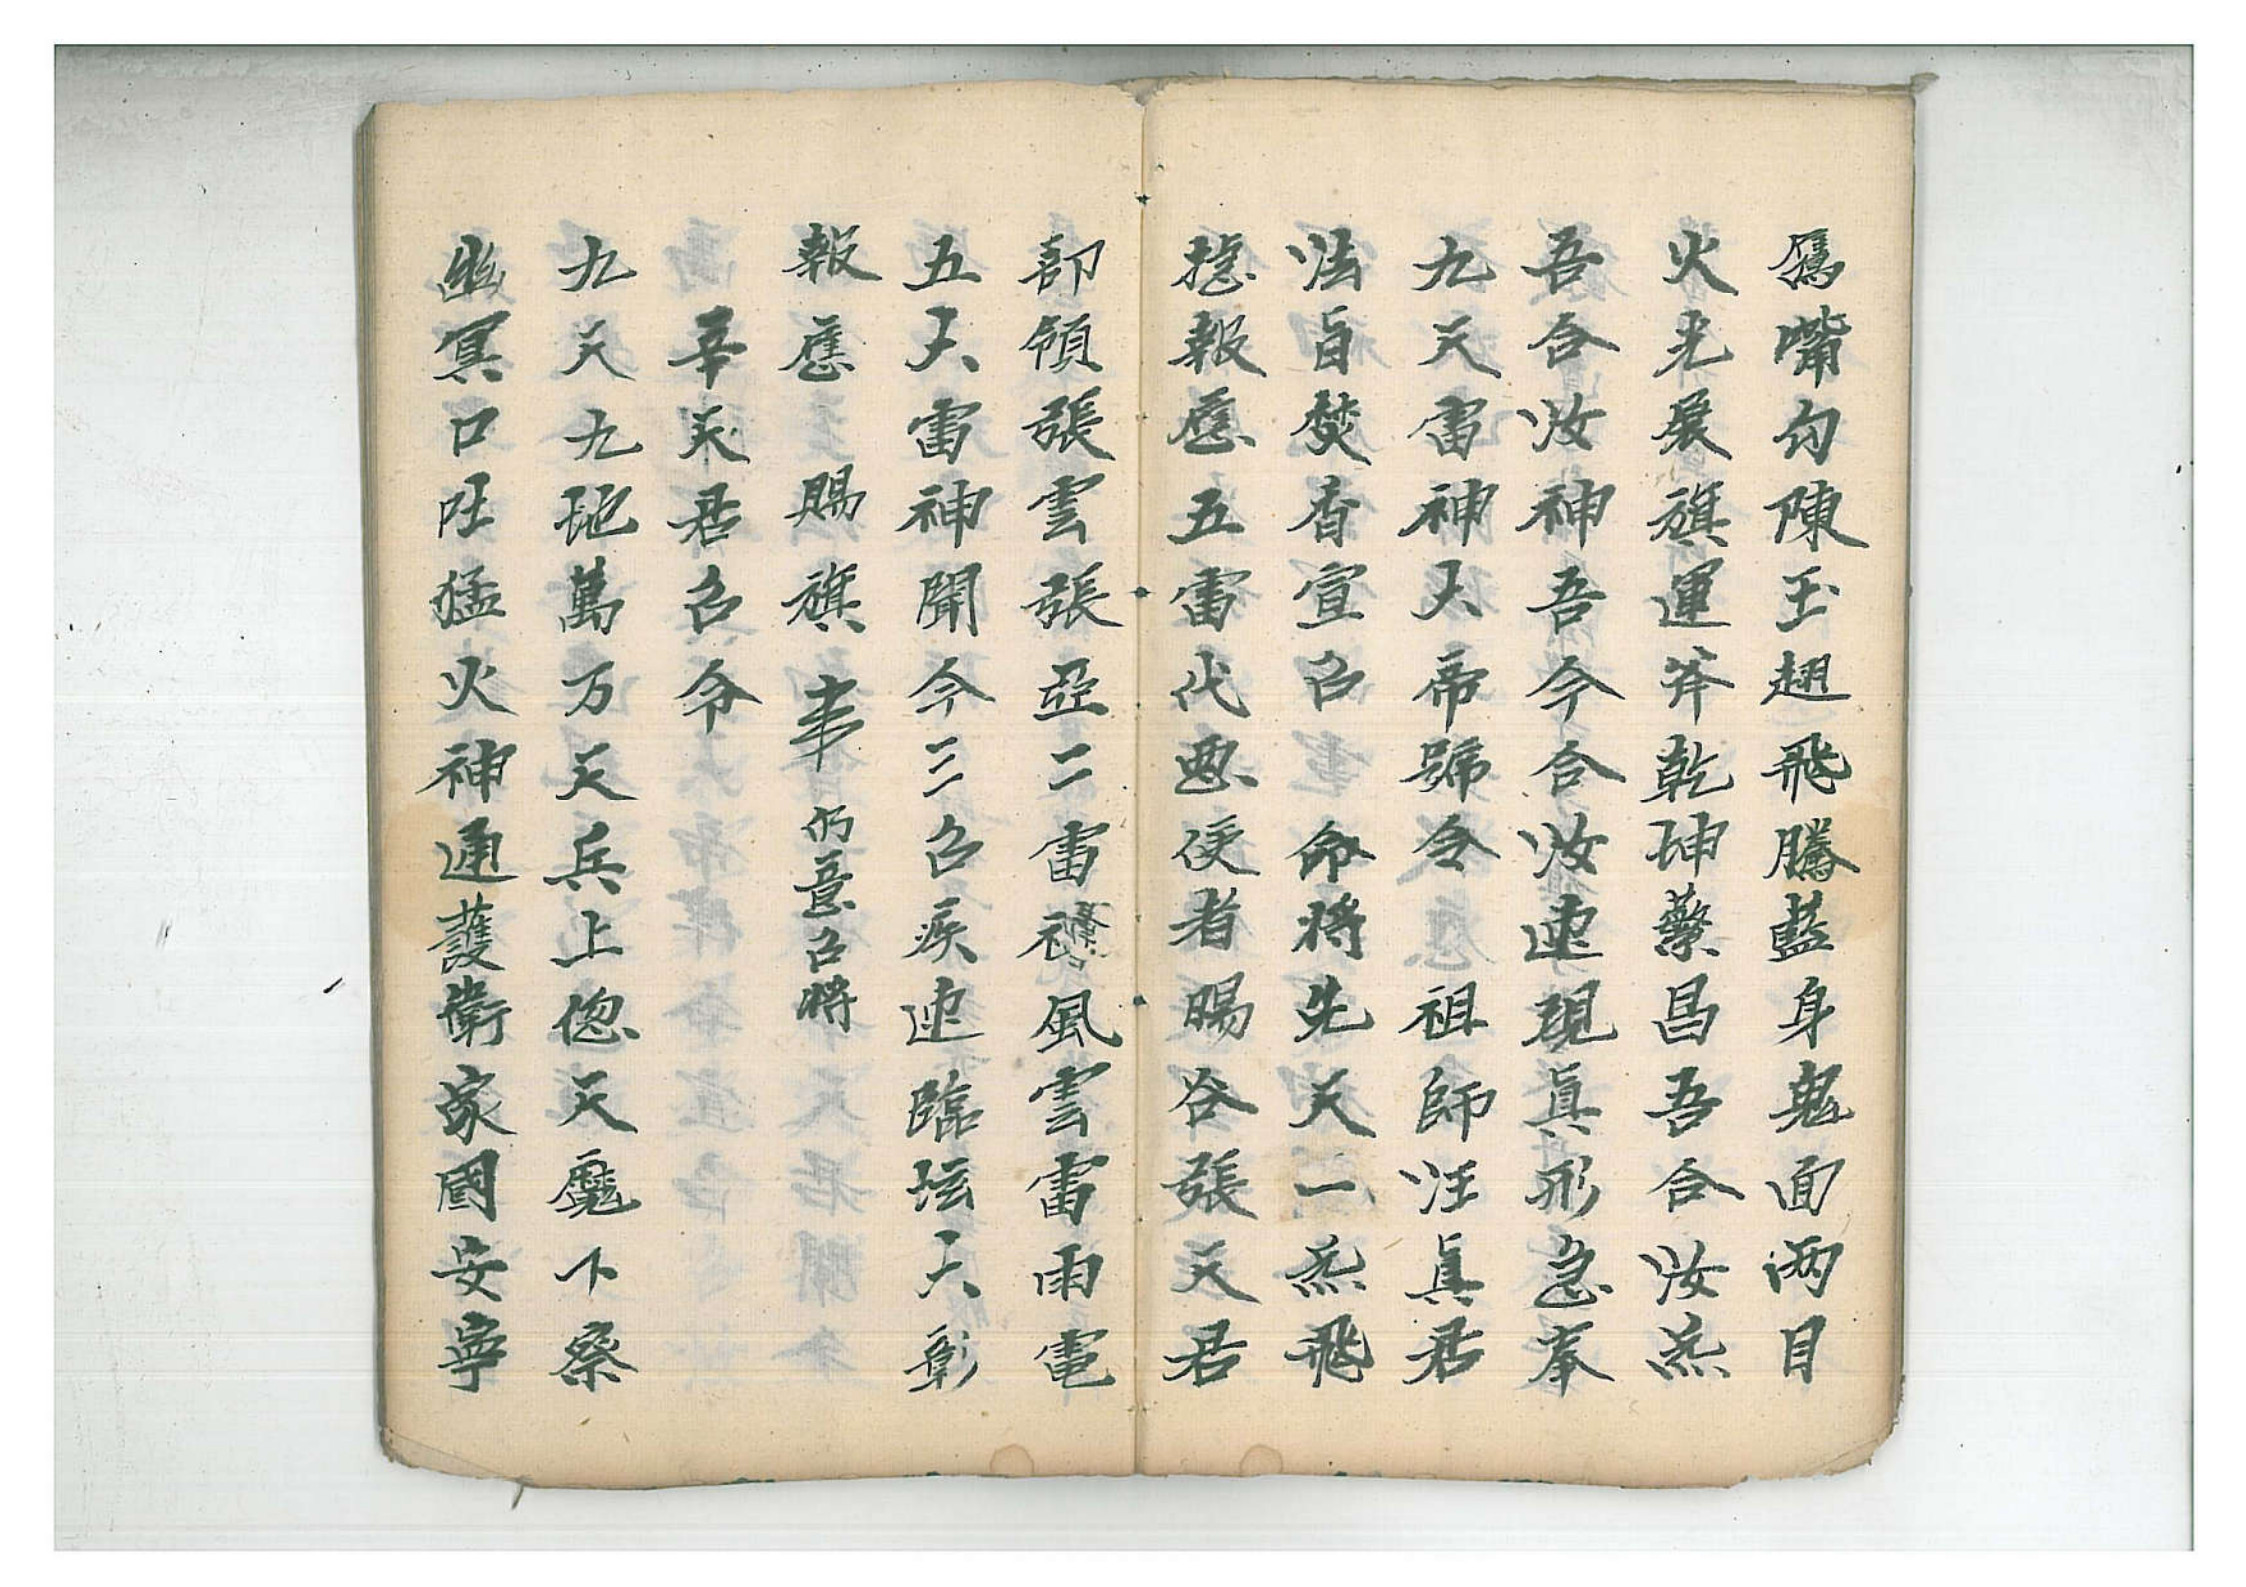 鴈嘴勾陳玉翅飛騰藍身鬼面两目
火光展旗運斧乾坤藂昌吾合汝炁
吾合汝神吾今合汝速現真形急奉
九天雷神大帝號令 祖師汪真君
法旨焚香宣召 命將先天一炁飛
捴報應五雷代惡使者賜谷張天君
部領張雲張亞二雷神風雲雷雨電
五大雷神聞今三召疾速臨坛大彰
報應 賜旗 仍意召將
辛天君召令
九天九地萬万天兵上偬天魔下察
幽冥口吐猛火神通護衛家國安寧